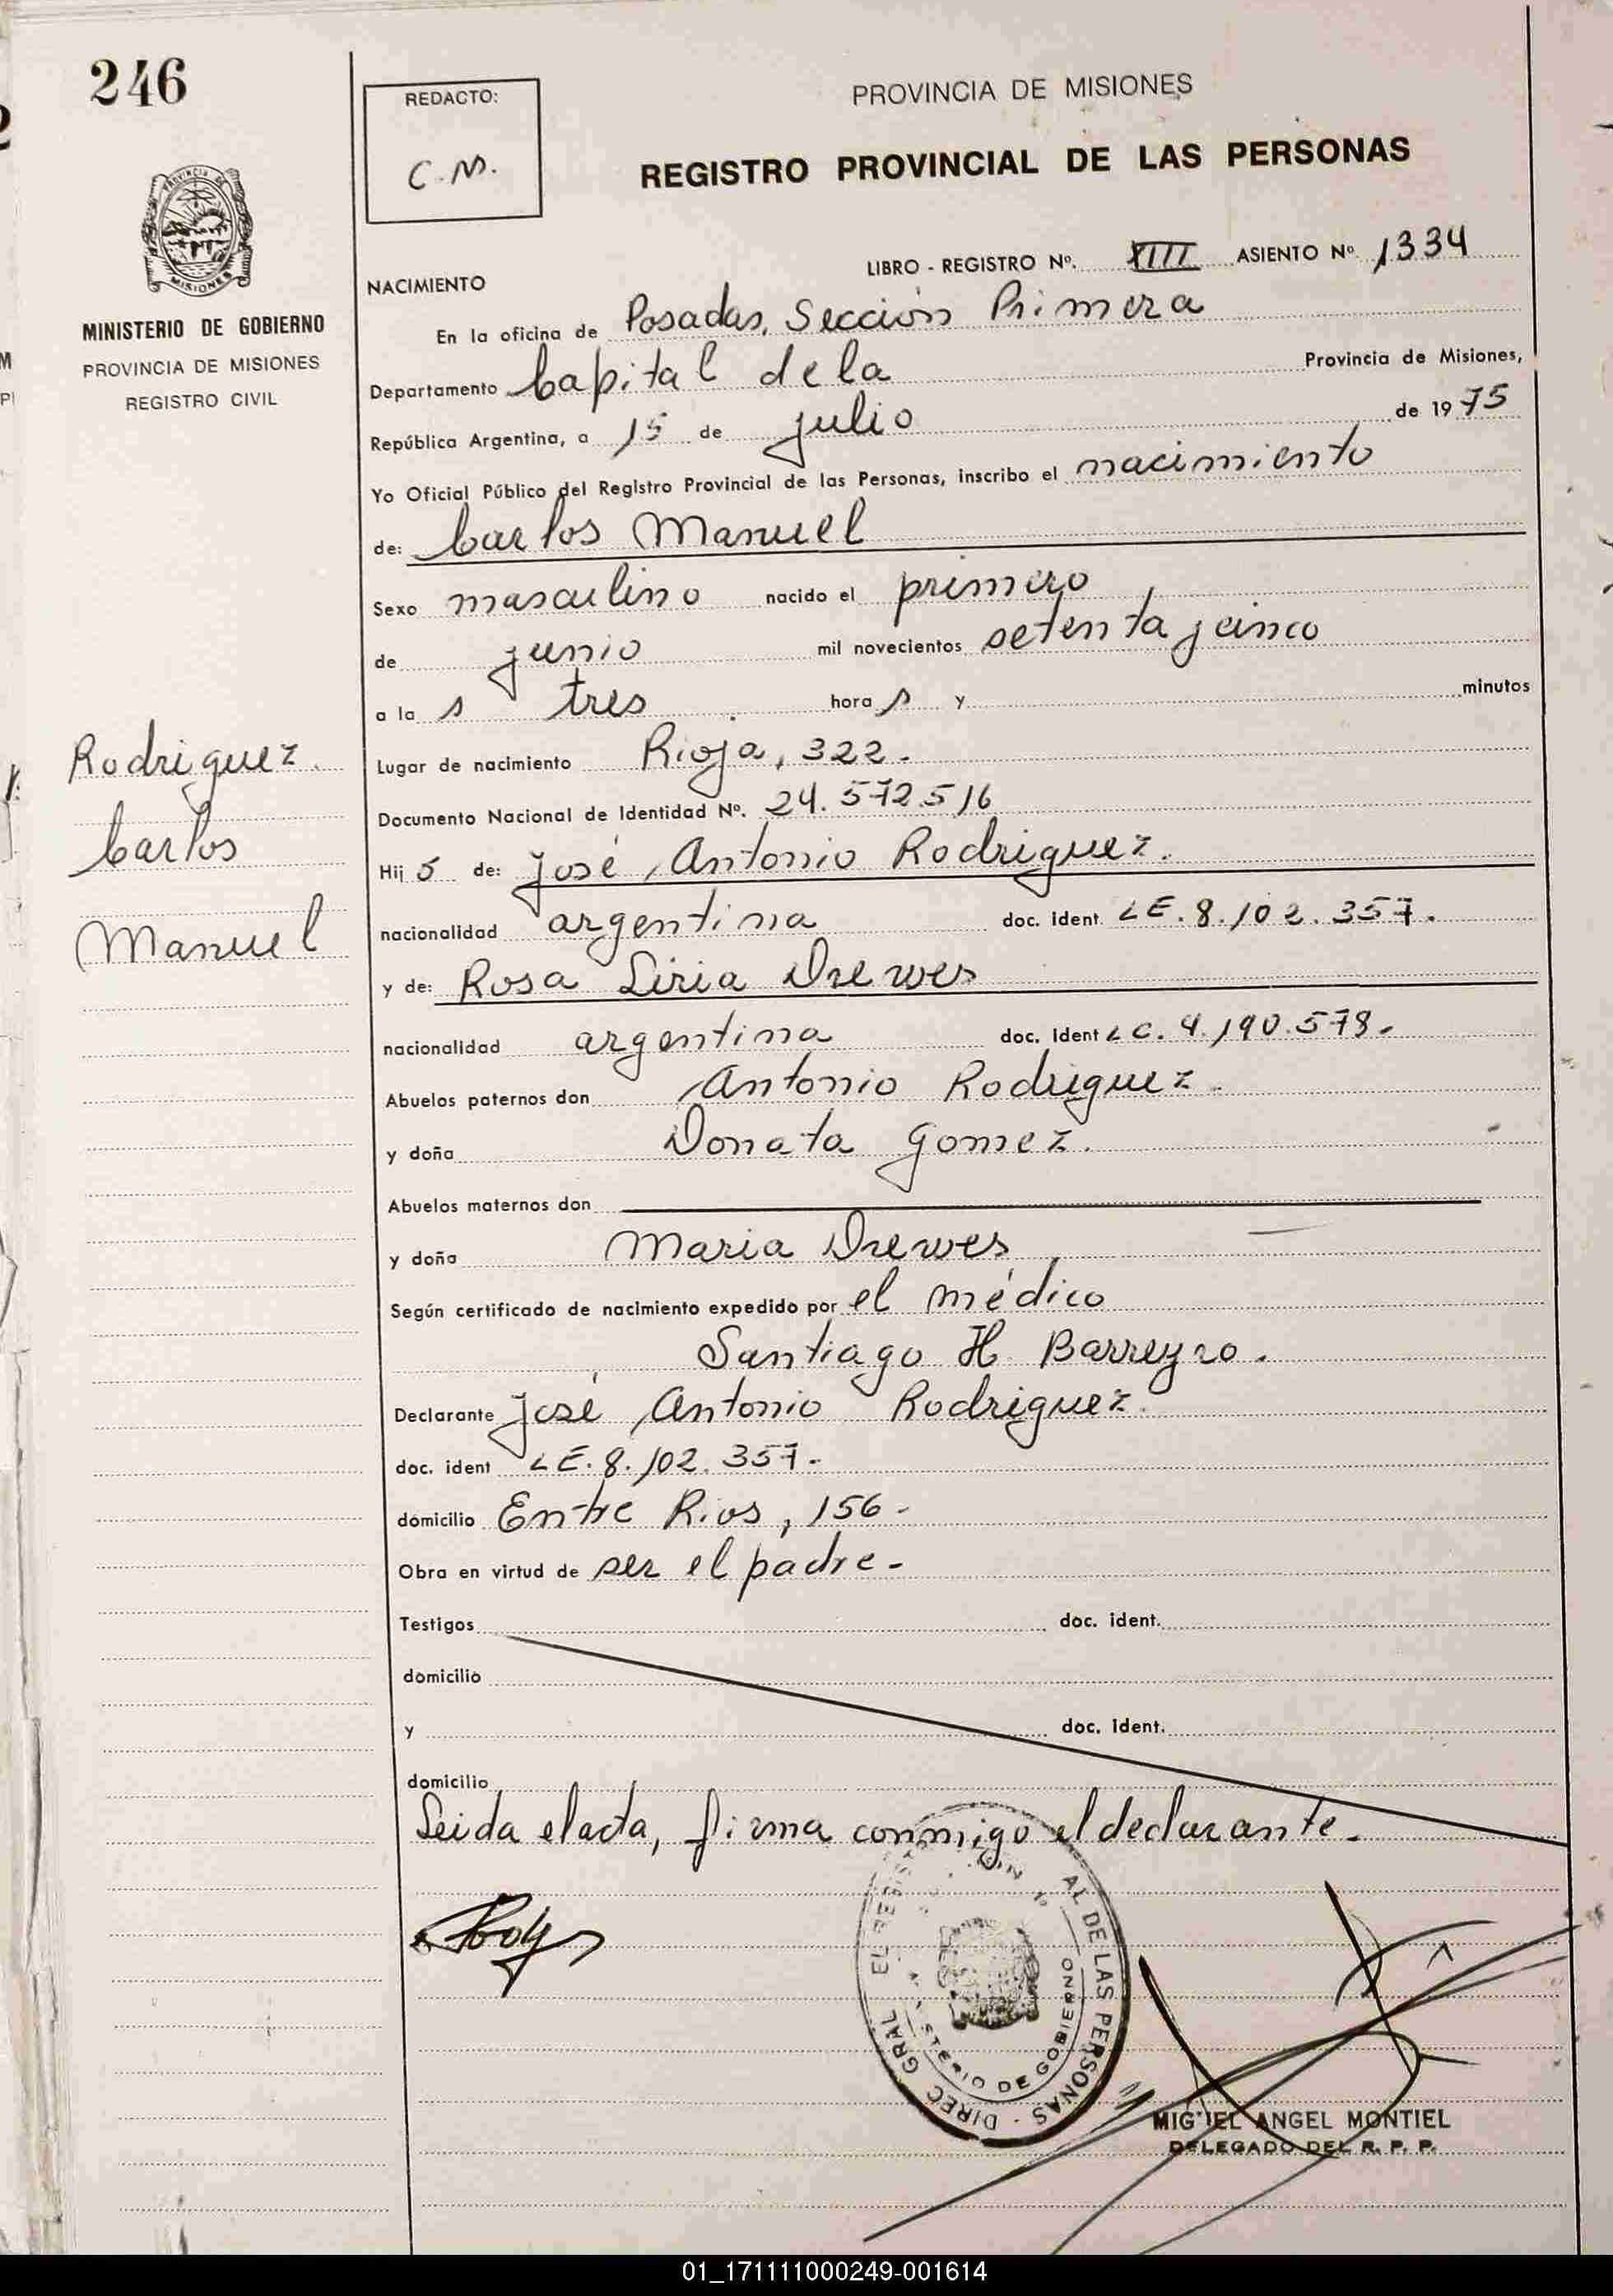 246
REDACTO:
C.M.
PROVINCIA DE MISIONES
REGISTRO PROVINCIAL DE LAS PERSONAS
MISIONES
MINISTERIO DE GOBIERNO
PROVINCIA DE MISIONES
REGISTRO CIVIL
LIBRO - REGISTRO Nº. XIII ASIENTO Nº 1334
NACIMIENTO
En la oficina de Posadas, Sección Primera
Departamento Capital de la Provincia de Misiones,
República Argentina, a 15 de julio de 1975
Yo Oficial Público del Registro Provincial de las Personas, inscribo el nacimiento
de: Carlos Manuel
Sexo masculino nacido el primero
de junio mil novecientos setenta y cinco
a la s tres hora s y minutos
Rodriguez
Carlos
Manuel
Lugar de nacimiento Rioja, 322.
Documento Nacional de Identidad Nº. 24.572.516
Hij o de: José Antonio Rodriguez.
nacionalidad argentina doc. ident. LE. 8.102.357.
y de: Rosa Liria Drewes
nacionalidad argentina doc. ident LC. 4.190.578.
Abuelos paternos don Antonio Rodriguez
y doña Donata Gomez.
Abuelos maternos don
y doña Maria Drewes
Según certificado de nacimiento expedido por el médico
Santiago H. Barreyro.
Declarante José Antonio Rodriguez.
doc. ident LE. 8.102.357.
domicilio Entre Rios, 156.
Obra en virtud de ser el padre.
Testigos doc. ident.
domicilio
y doc. ident.
domicilio
Leida el acta, firma conmigo el declarante.
DIREC GRAL EL REGIST AL DE LAS PERSONAS
STERIO DE GOBIERNO
MIGUEL ANGEL MONTIEL
DELEGADO DEL R. P. P.
01_171111000249-001614